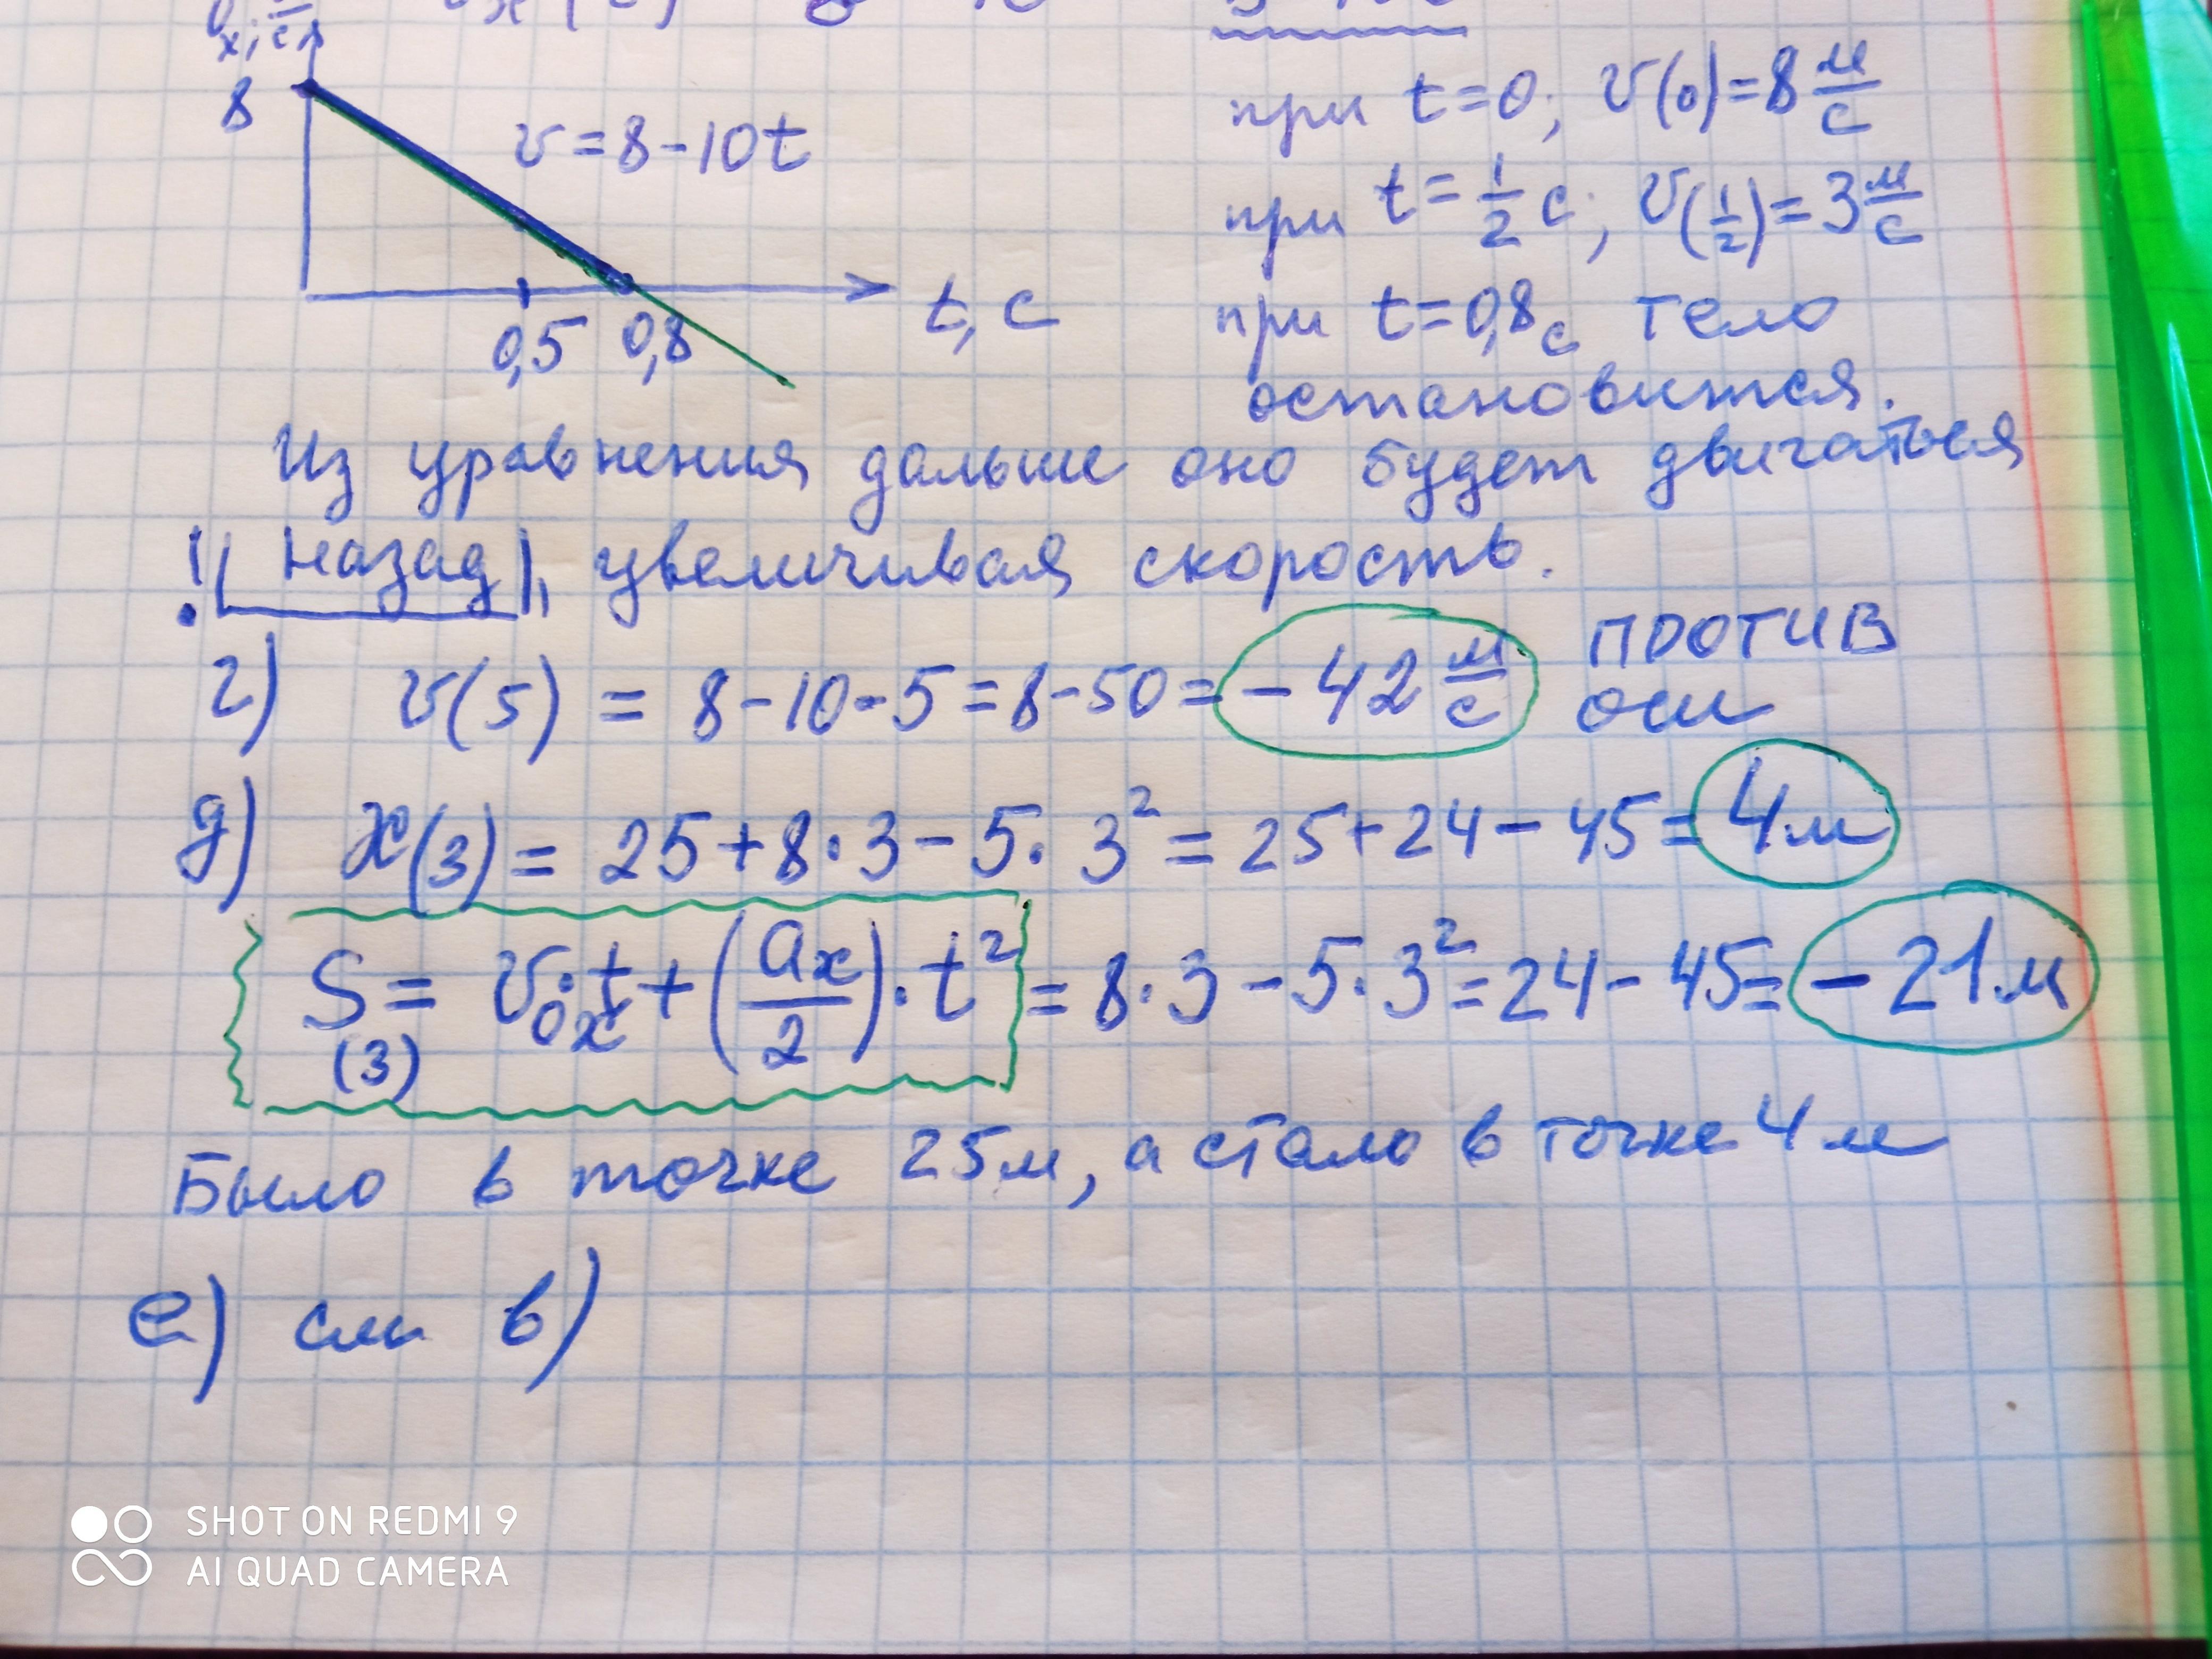 x, с
8
v=8-10t
0,5 0,8
t, с
при t=0; v(0)=8 м/с
при t=1/2 с; v(1/2)=3 м/с
при t=0,8с тело
остановится.
Из уравнения дальше оно будет двигаться
! назад, увеличивая скорость.
г) v(5) = 8-10·5=8-50= -42 м/с против
оси
д) x(3) = 25+8·3-5·3² = 25+24-45= 4м
S(3) = v₀ₓ·t+(aₓ/2)·t² = 8·3-5·3²=24-45= -21м
Было в точке 25м, а стало в точке 4м
е) см в)
SHOT ON REDMI 9
AI QUAD CAMERA